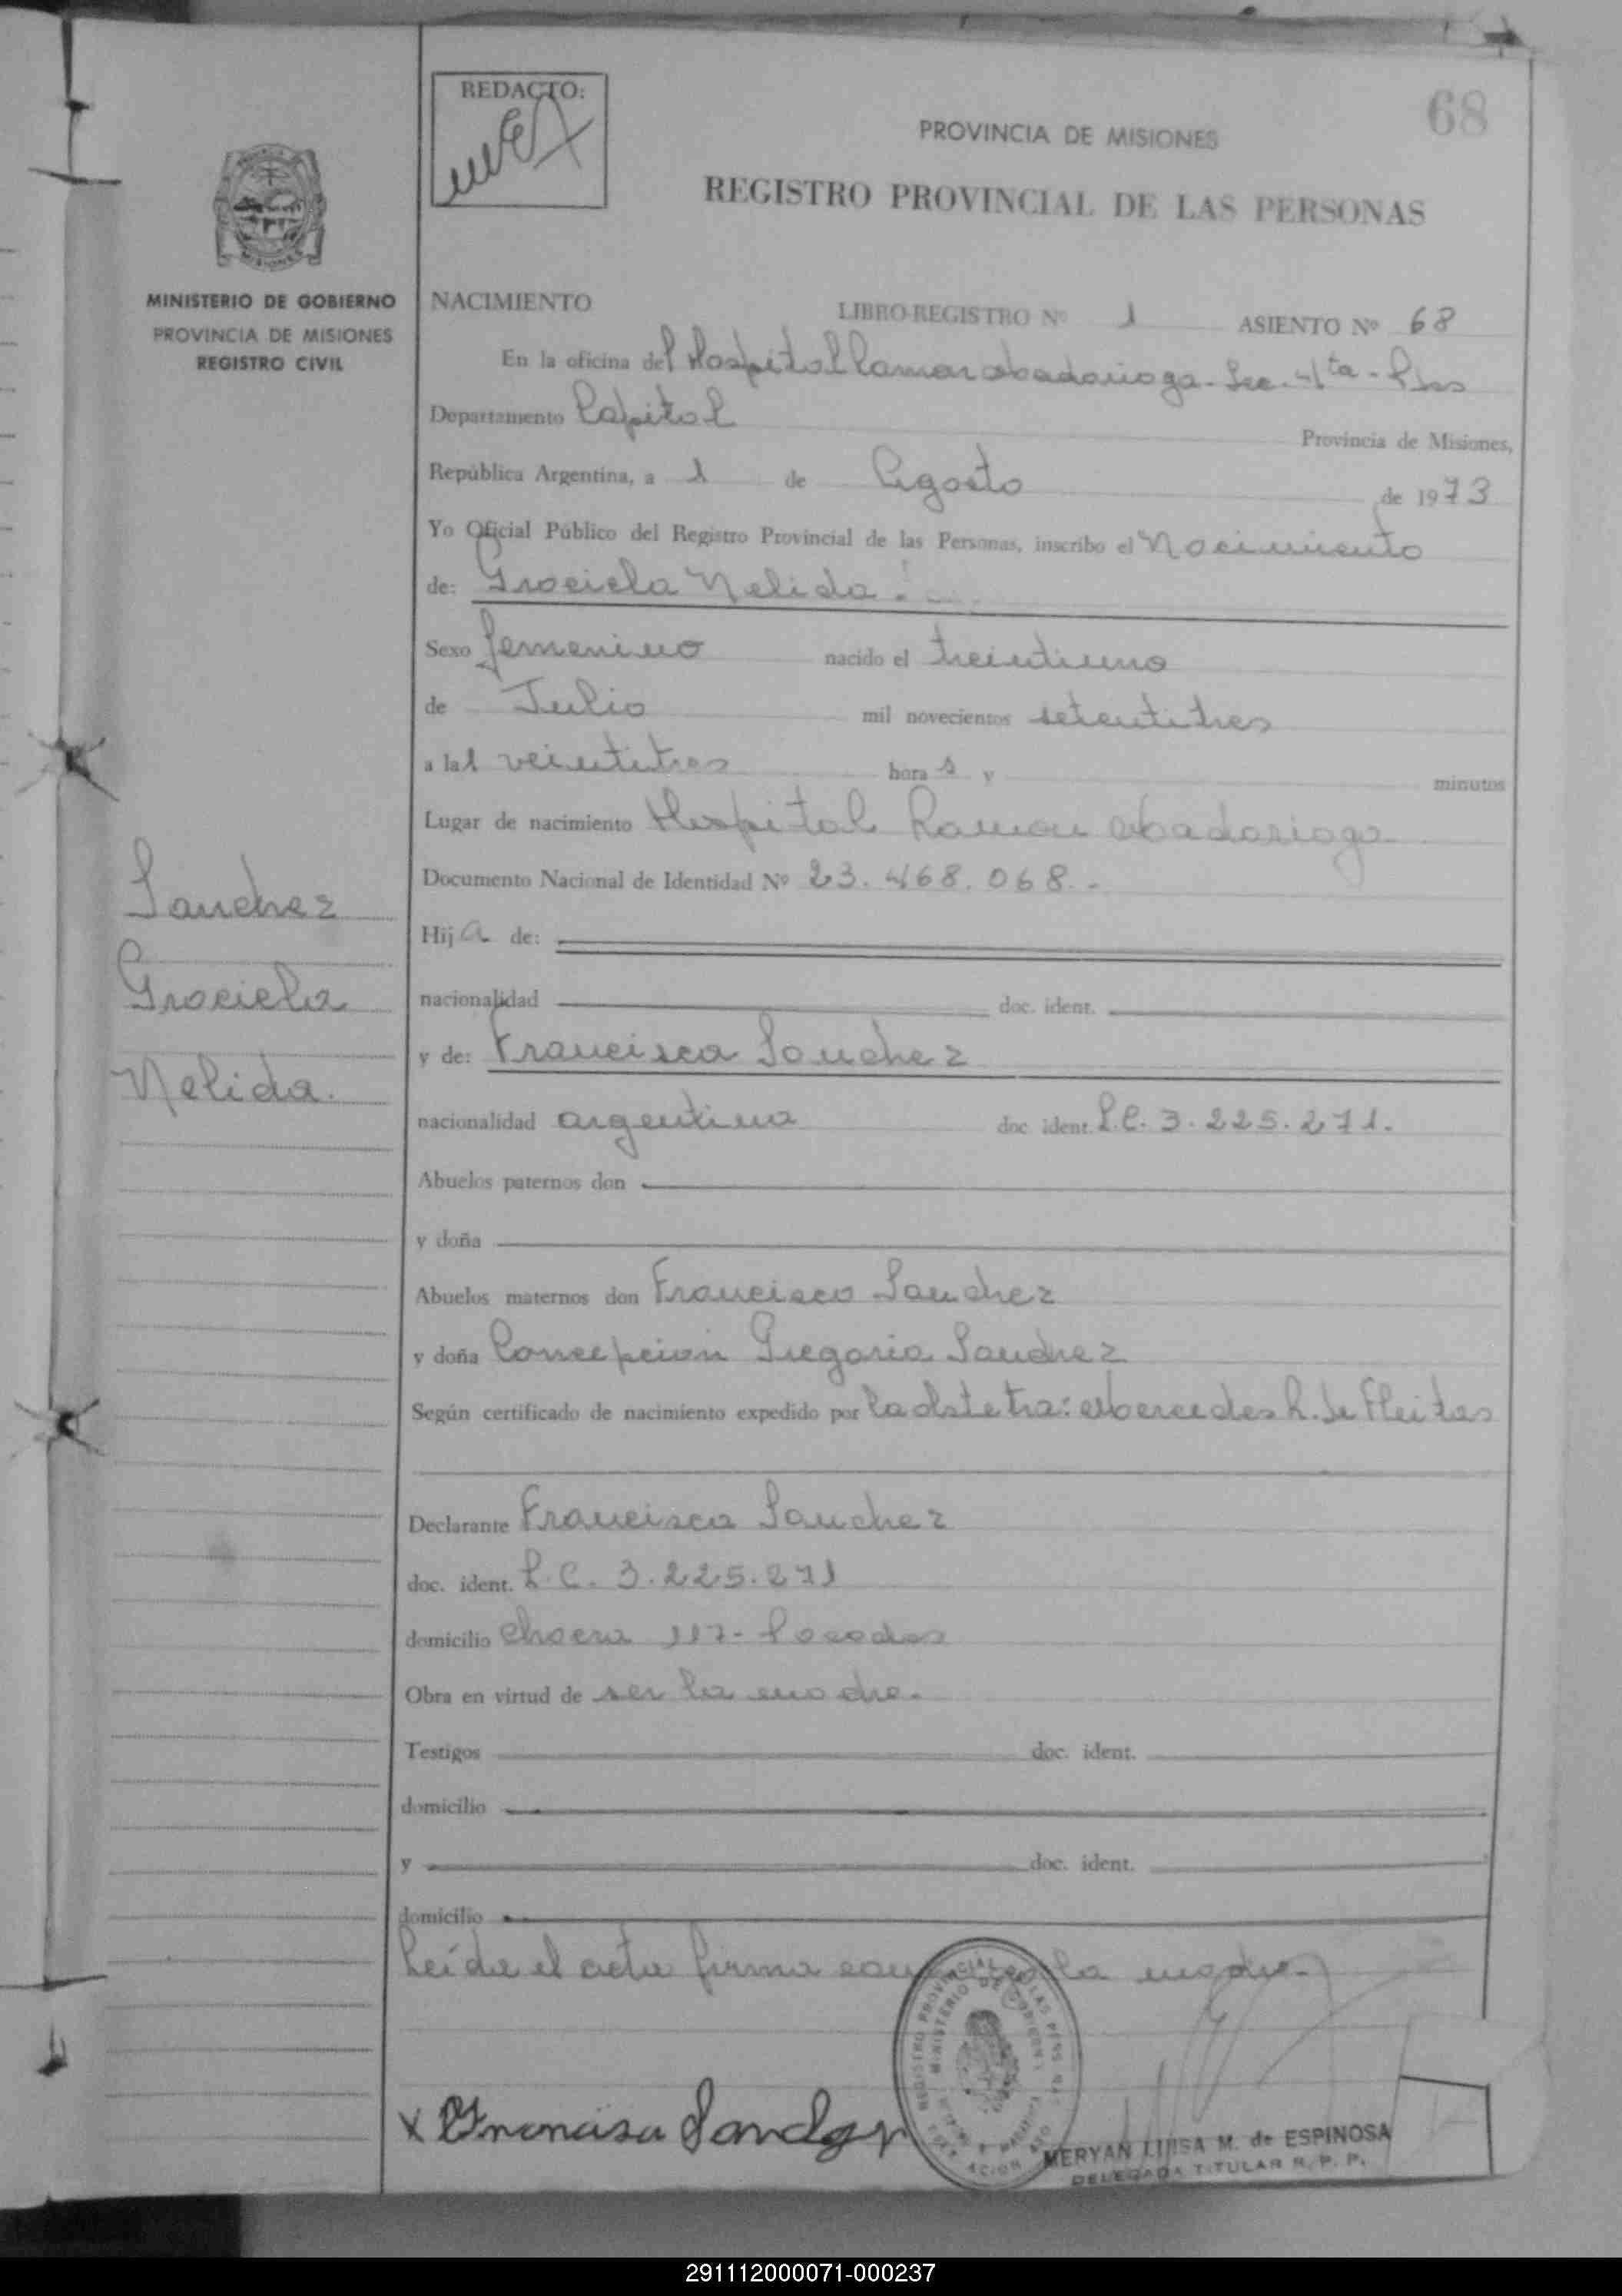 REDACTO:
68
PROVINCIA DE MISIONES
REGISTRO PROVINCIAL DE LAS PERSONAS
MINISTERIO DE GOBIERNO
PROVINCIA DE MISIONES
REGISTRO CIVIL
NACIMIENTO LIBRO-REGISTRO Nº 1 ASIENTO Nº 68
En la oficina del Hospital Ramon Madariaga - Sec. 4ta - Pdas
Departamento Capital Provincia de Misiones,
República Argentina, a 1 de Agosto de 1973
Yo Oficial Público del Registro Provincial de las Personas, inscribo el Nacimiento
de: Graciela Nelida.
Sexo femenino nacido el treintiuno
de Julio mil novecientos setentitres
a las veintitres horas y minutos
Lugar de nacimiento Hospital Ramon Madariaga
Documento Nacional de Identidad Nº 23.468.068.-
Sanchez
Graciela
Nelida.
Hija de:
nacionalidad doc. ident.
y de: Francisca Sanchez
nacionalidad argentina doc. ident. L.C. 3.225.271.
Abuelos paternos don
y doña
Abuelos maternos don Francisco Sanchez
y doña Concepcion Gregoria Sanchez
Según certificado de nacimiento expedido por la obstetra: Mercedes R. de Fleitas
Declarante Francisca Sanchez
doc. ident. L.C. 3.225.271
domicilio Chacra 117 - Posadas
Obra en virtud de ser la madre.
Testigos doc. ident.
domicilio
y doc. ident.
domicilio
Leida el acta firma la madre.-
x Francisca Sanchez
MERYAN LUISA M. de ESPINOSA
DELEGADA TITULAR R. P. P.
291112000071-000237